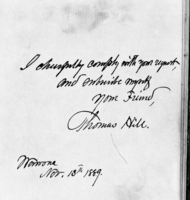 I cheerfully comply with your request,
and subscribe myself
Your Friend,
Thomas Hill.
Nov. 18th 1889.